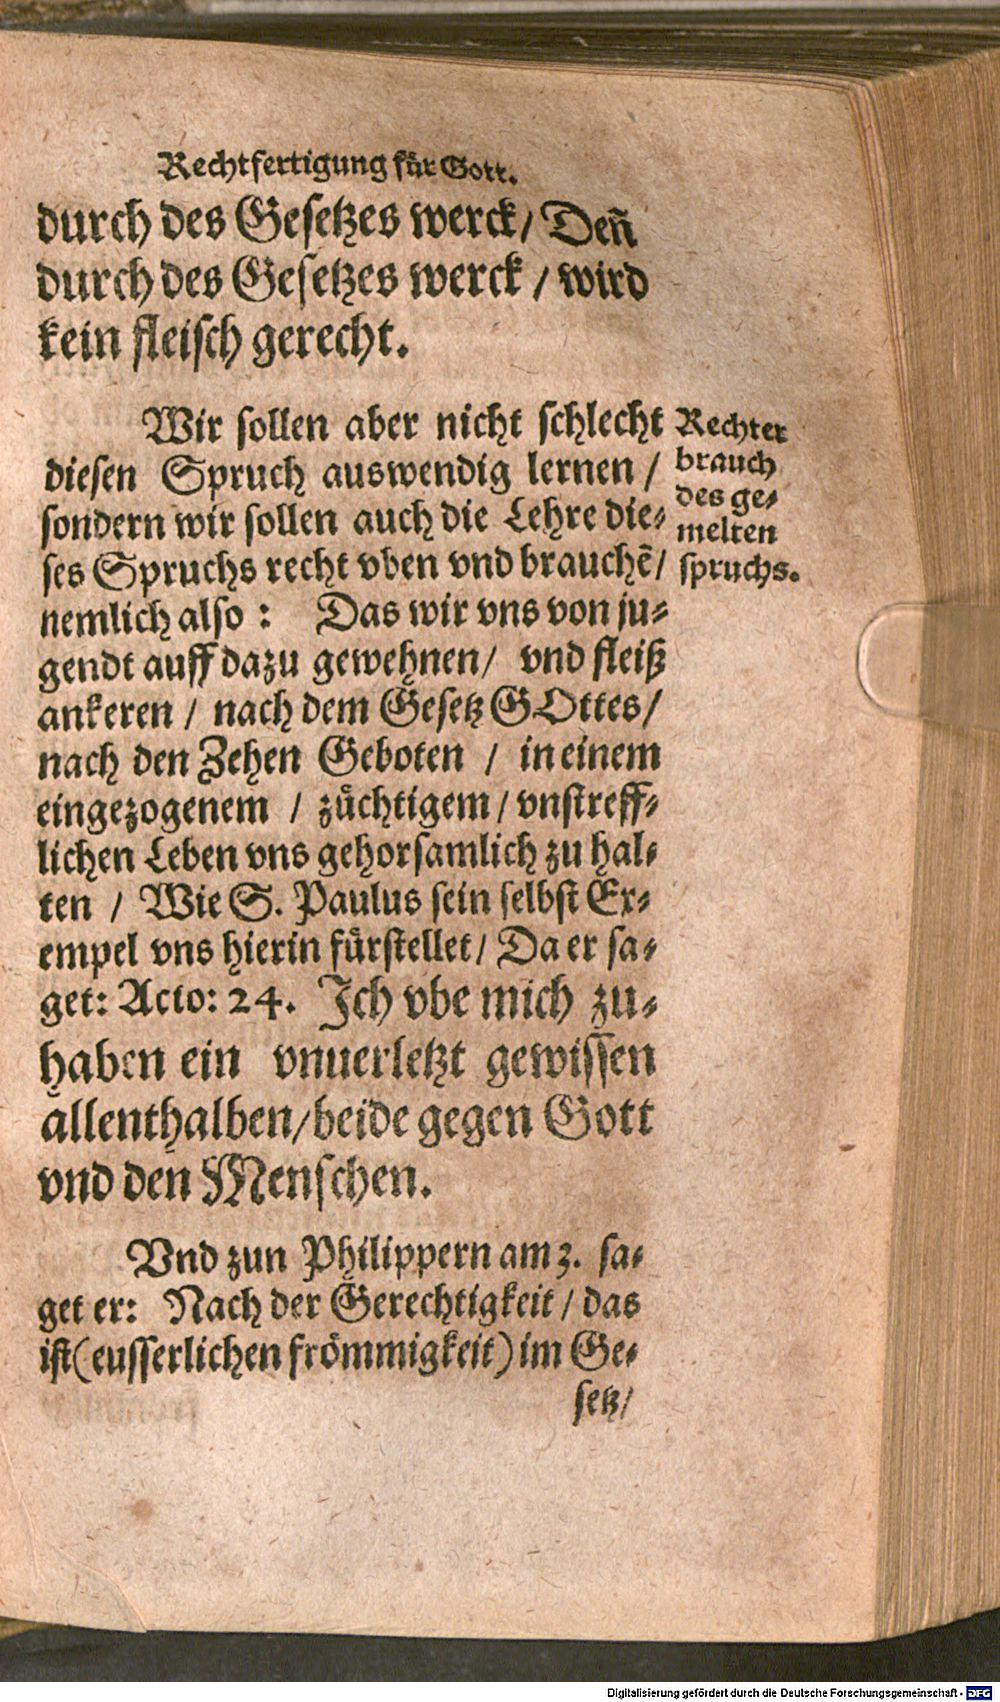 Rechtfertigung für Gott.
durch des Gesetzes werck/ Deñ
durch des Gesetzes werck / wird
kein fleisch gerecht.
Wir sollen aber nicht schlecht
diesen Spruch auswendig lernen /
sondern wir sollen auch die Lehre die-
ses Spruchs recht vben vnd brauchẽ/
nemlich also : Das wir vns von ju-
gendt auff dazu gewehnen/ vnd fleiß
ankeren / nach dem Gesetz GOttes/
nach den Zehen Geboten / in einem
eingezogenem / züchtigem / vnstreff-
lichen Leben vns gehorsamlich zu hal-
ten / Wie S. Paulus sein selbst Ex-
empel vns hierin fürstellet/ Da er sa-
get: Acto: 24. Ich vbe mich zu-
haben ein vnuerletzt gewissen
allenthalben/beide gegen Gott
vnd den Menschen.
Vnd zun Philippern am 3. sa-
get er: Nach der Gerechtigkeit / das
ist(eusserlichen frömmigkeit) im Ge-
setz/
Rechter
brauch
des ge-
melten
spruchs.
Digitalisierung gefördert durch die Deutsche Forschungsgemeinschaft - DFG